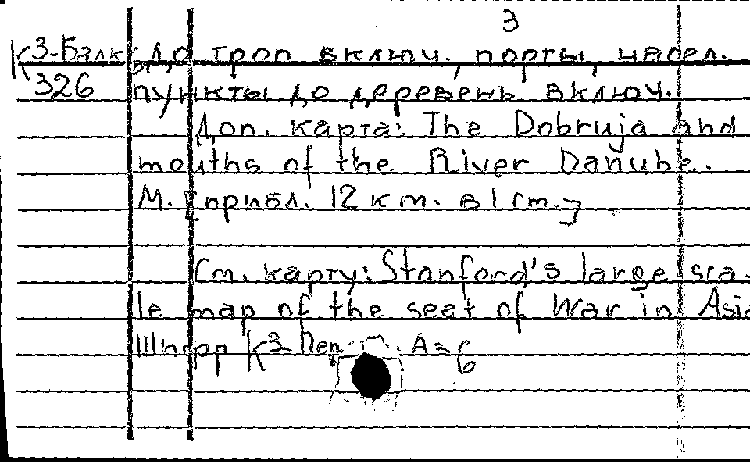 3
К3-Балк. до троп включ., порты, насел.
326 пункты до деревень включ.
Доп. карта: The Dobruja and
mouths of the River Danube.
М. [прибл. 12 км. в 1 см.]
См. карту: Stanford's large sca-
le map of the seat of War in Asia
Шифр К3